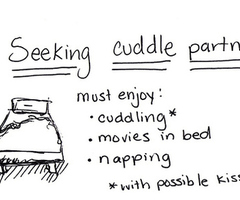 Seeking cuddle partn
must enjoy:
• cuddling*
• movies in bed
• napping
*with possible kiss